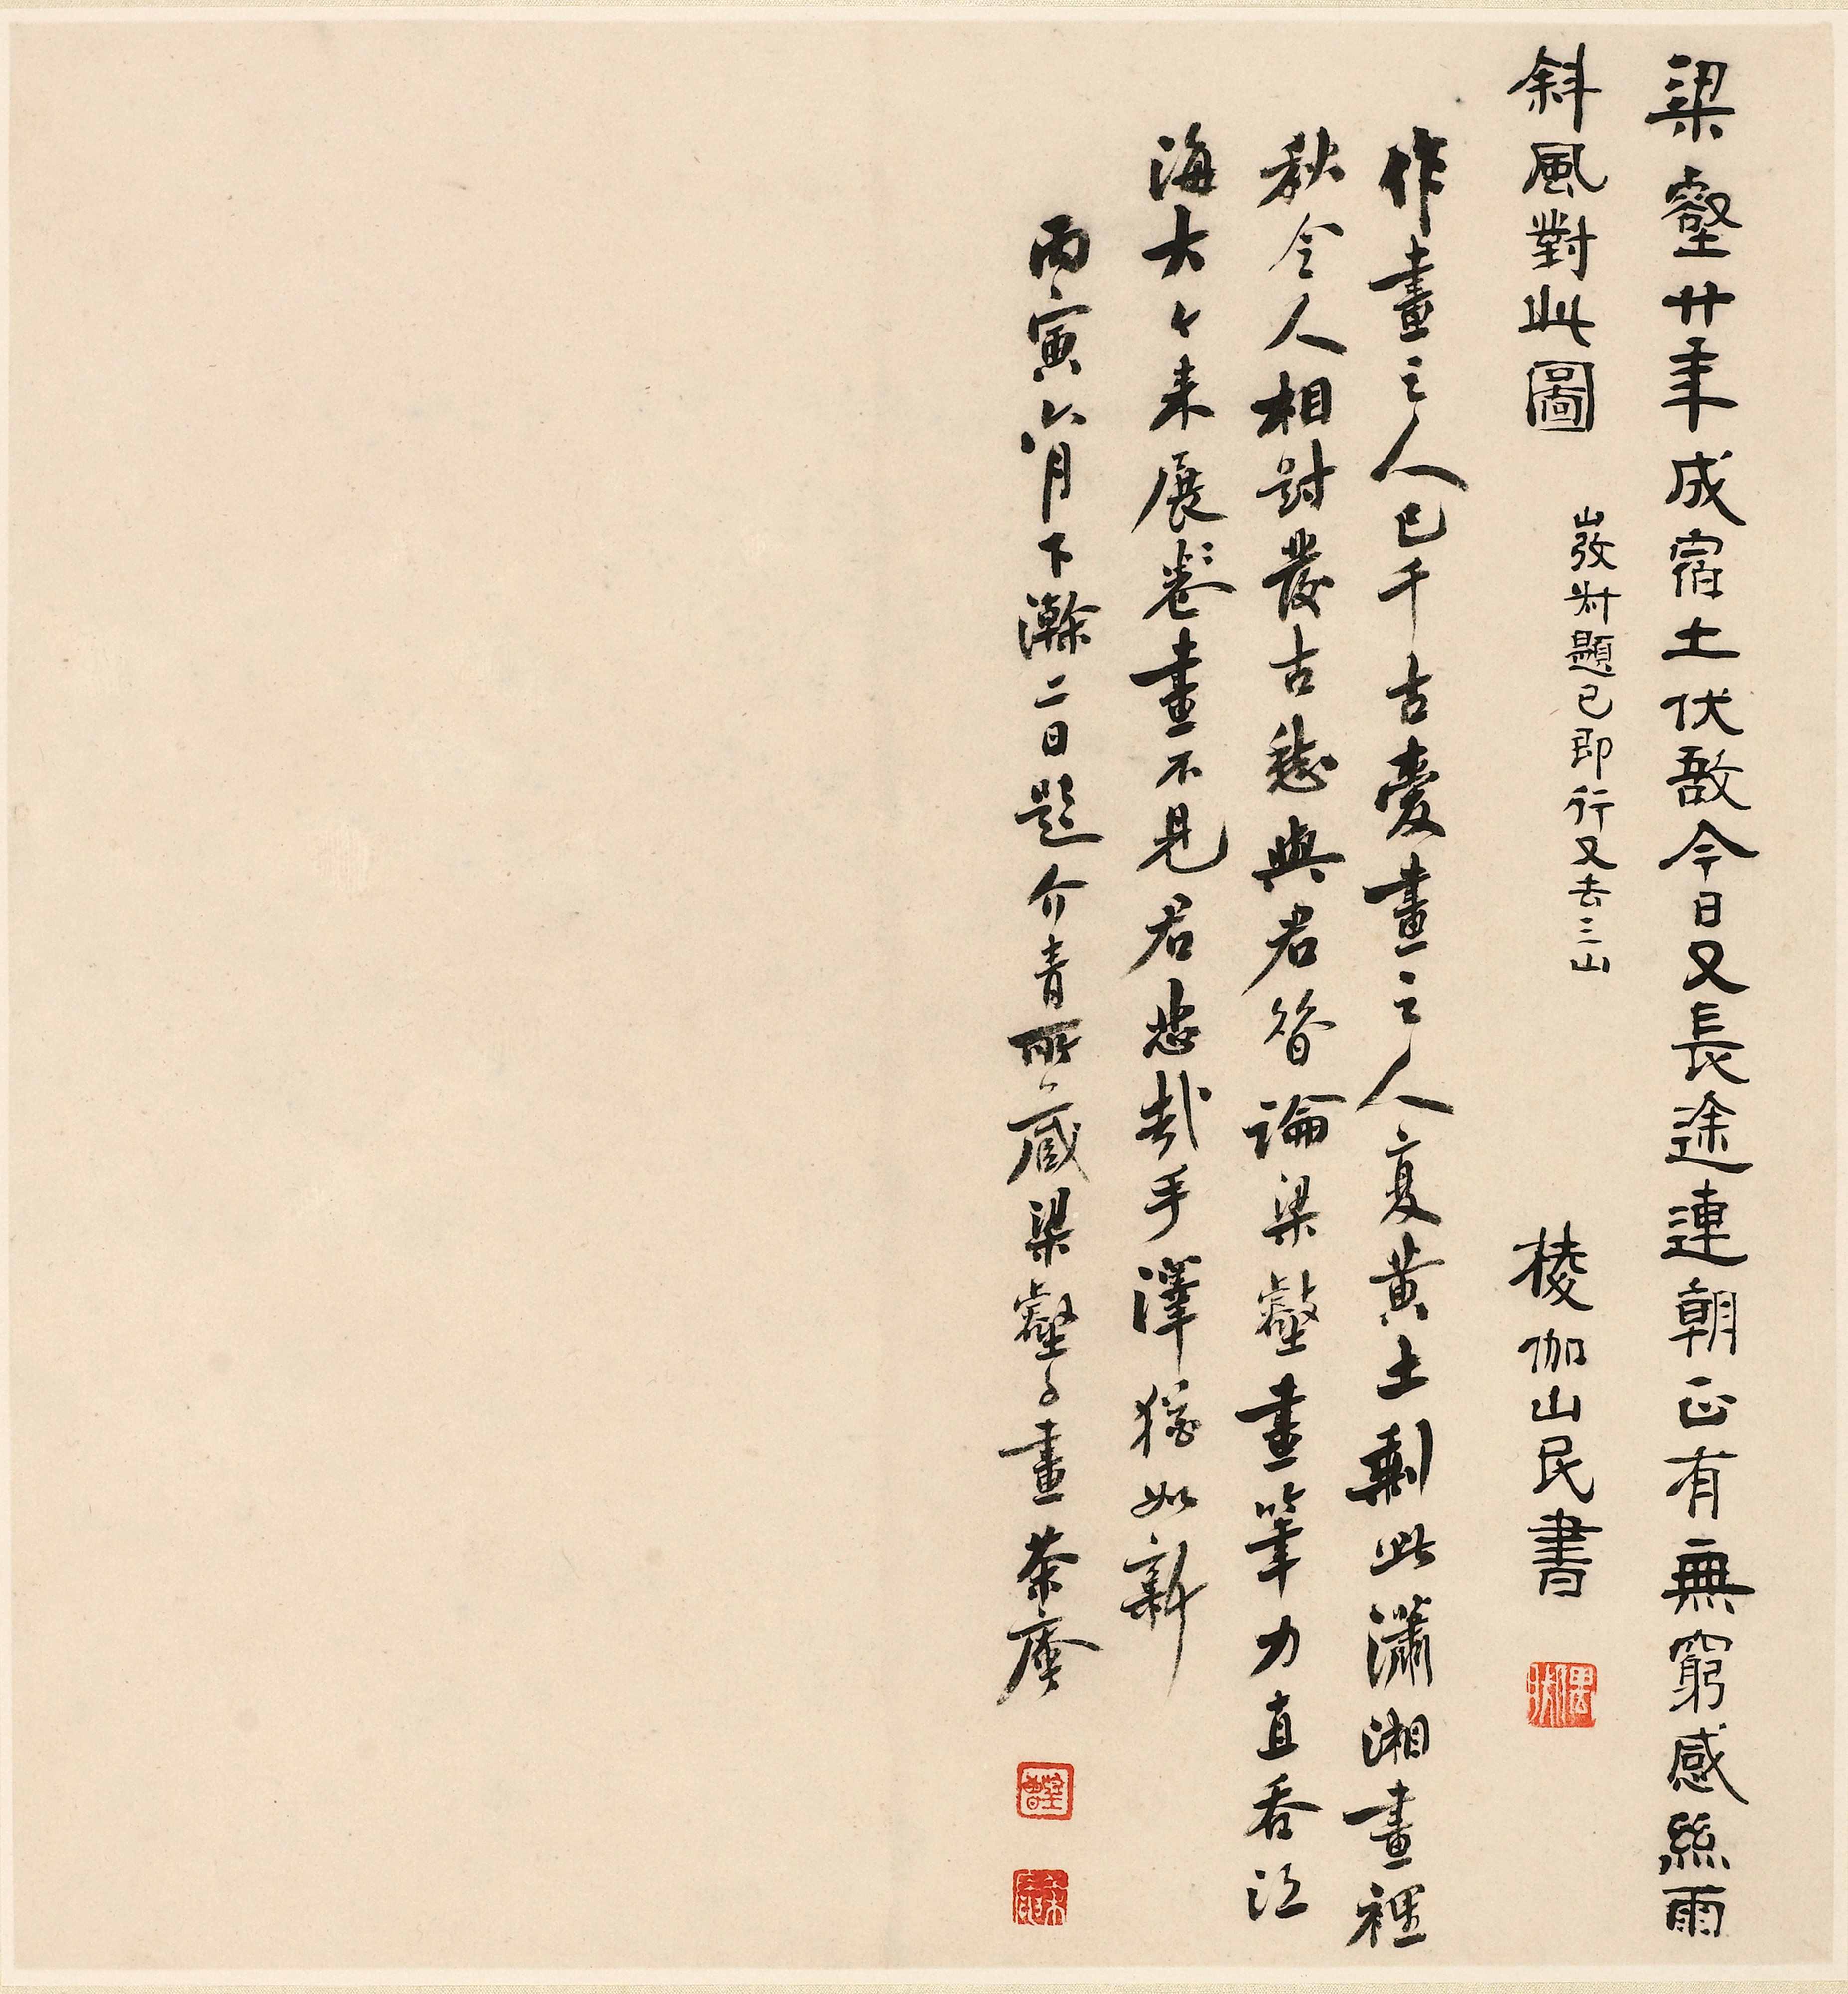 梁壑廿年成宿土伏敔今日又長途連朝正有無窮感絲雨
斜風對此圖
山弢尗題已即行又去三山
棱伽山民書
作畫之人已千古愛畫之人亦黃土剩此瀟湘畫裡
秋令人相對發古愁與君昝論梁壑畫筆力直吞江
海大々來展卷畫不見君悲哉手澤猶如新
丙寅六月下澣二日題介青所藏梁壑子畫茶庵